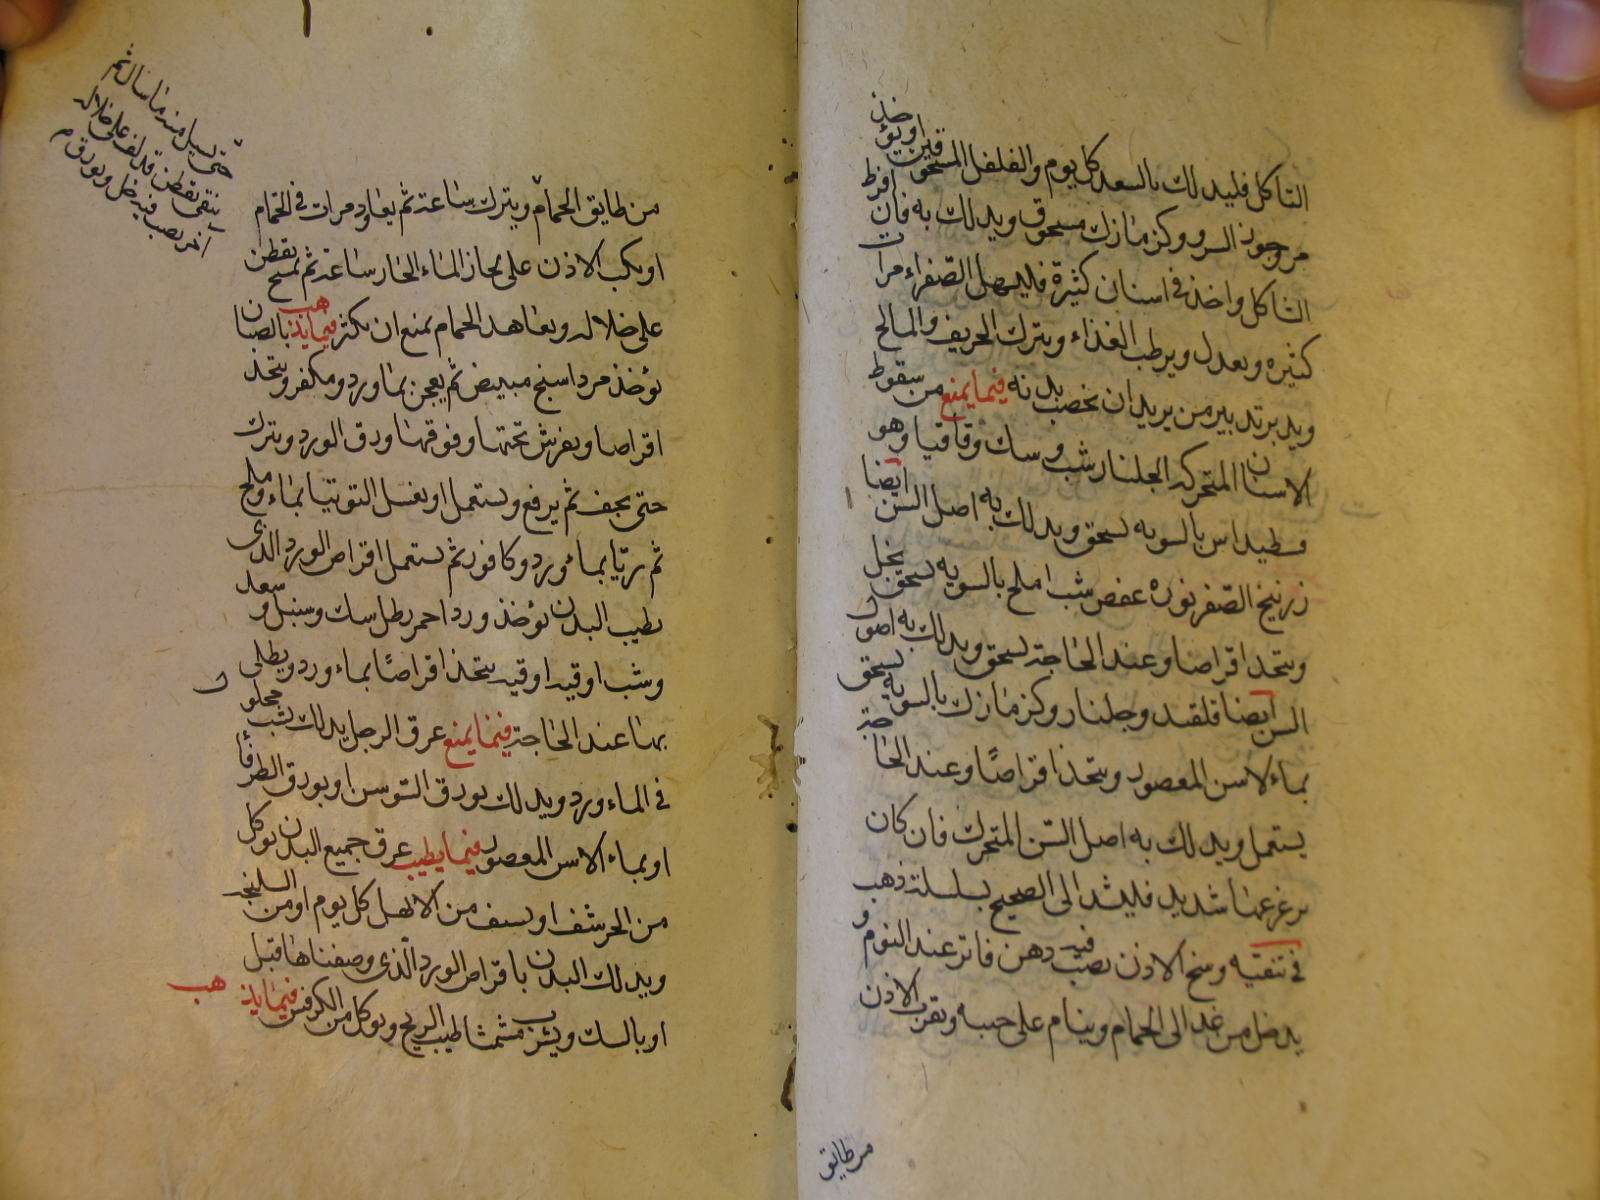 التاكل فليدلك بالسعد كل يوم والفلفل المسحوق قلين او يؤخذ
من جوز السرو وكزمازك مسحوق ويدلك به فان افرط
التاكل واخذ في اسنان كثيرة فليسهل الصفراء مرات
كثيره ويعدل ويرطب الغذاء ويترك الحريف والمالح
ويدبر تدبير من يريد ان يخصب بدنه فيما يمنع من سقوط
الاسنان المتحركه الجلنار شب وسك وقاقيا وهو
فسطيداس بالسويه يسحق ويدلك به اصل السن ايضا
زرنيخ اصفر نوره عفص شب املح بالسويه يسحق ينخل
ويتخذ اقراصا وعند الحاجة يسحق ويدلك به اصول
السن ايضا قلقند وجلنار وكزمازك بالسويه يسحق
بماء الاس المعصور ويتخذ اقراصًا وعند الحاجة
يستعمل ويدلك به اصل السن المتحرك فان كان
تزعزعها شديد فليشد الى الصحيح بسلسلة ذهب
في تنقيه وسخ الاذن يصب فيه دهن فاتر عند النوم و
يدخل من غد الى الحمام وينام على جنبه ويقرب الاذن
من طابق
من طابق الحمام ويترك ساعة ثم يعاود مرات في الحمام
او يكب الاذن على بخار الماء الحار ساعة ثم يمسح بقطن
على خلاله ويعاهد الحمام يمنع ان يكثر فيما يذهب بالصبان
يؤخذ مرداسنج مبيض ثم يعجن بماورد ومكفر ويتخذ
اقراصا ويفرش تحتها وفوقها ورق الورد ويترك
حتى يجف ثم يرفع ويستعمل او يغسل التوتيا بماء وملح
ثم يربا بماء ورد وكافور ثم يستعمل اقراص الورد الذى
يطيب البدن يؤخذ ورد احمر رطل سك وسنبل و سعد
وشب اوقيه اوقيه يتخذ اقراصًا بماء ورد ويطلى
بها عند الحاجة فيما يمنع عرق الرجل يدلك بشب محلول
في الماء ورد ويدلك بورق السوسن او بورق الطرفا
او بماء الاس المعصور فيما يطيب عرق جميع البدن يوكل
من الحرشف او يسف من الابهل كل يوم او من السليخه
ويدلك البدن باقراص الورد الذى وصفناها قبل
او بالسك ويشرب مشمشا طيب الريح ويوكل من الكرفس فيما يذهب
حتى يسيل منه ما سال ثم
ينقى بقطن قد لف على خلاله
آخر يصب فيه خل وبورق م